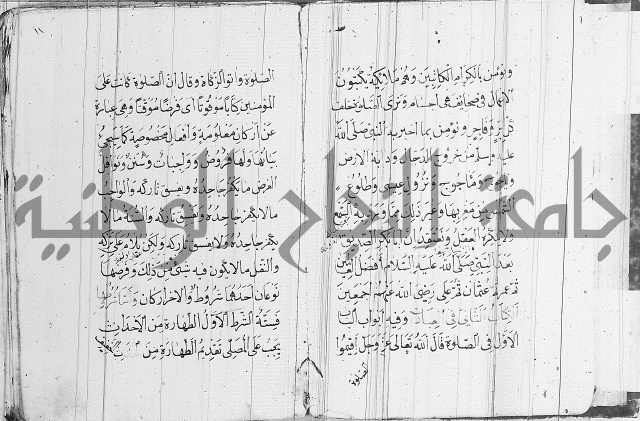 ونؤمن بالكرام الكاتبين وهم ملائكة يكتبون
الاعمال في صحائف هي اجسام ونرى الصلوة خلف
كل بر وفاجر ونؤمن بما اخبر به النبي صلى الله
عليه وسلم من خروج الدجال ودابة الارض
وياجوج وماجوج ونزول عيسى وطلوع
الشمس من مغربها وغير ذلك مما ورد به
ولا ينكره العقل ونعتقد ان ابا بكر الصديق
بعد النبي صلى الله عليه السلام افضل
ثم عمر ثم عثمان ثم على رضي الله عنهم اجمعين
الكتاب الثاني في وفيه ابواب الباب
الاول في الصلوة قال الله تعالى عز وجل اقيموا
الصلوة
الصلوة واتوا الزكاة وقال ان الصلوة كانت على
المؤمنين كتابا موقوتا اى فرضا موقتا وهى عبارة
عن اركان معلومة وافعال مخصوصة كما سيجئ
بيانها ولها فروض وواجبات وسنن ونوافل
الفرض ما يكفر جاحده ويفسق تاركه والواجب
ما لا يكفر جاحده ويفسق تاركه والسنة ما لا
يكفر جاحده ولا يفسق تاركه ولكن يلام على تركه
والنفل ما لا يكون فيه شئ من ذلك وفروضها
نوعان احدهما شروط والاخر اركان
فستة الشرط الاول الطهارة من الاحداث
يجب على المصلى تقديم الطهارة من
جامعة النجاح الوطنية